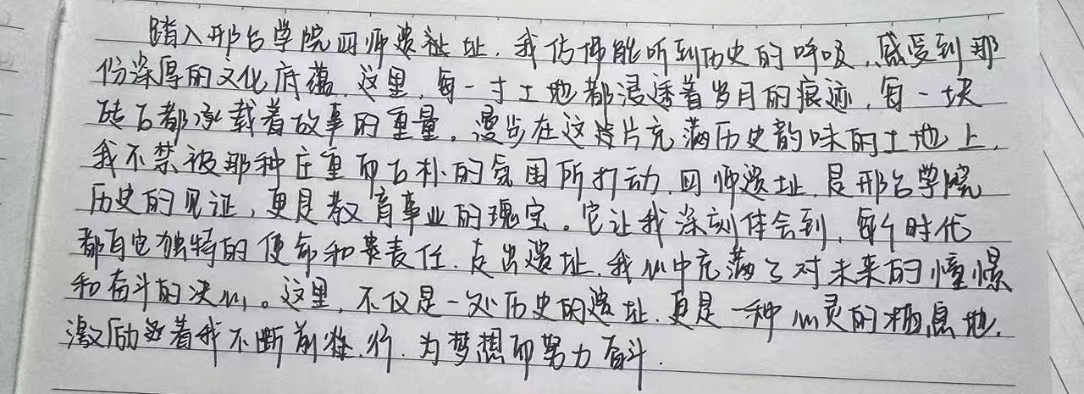 踏入邢台学院四师遗址,我仿佛能听到历史的呼吸,感受到那
份深厚的文化底蕴。这里,每一寸土地都浸透着岁月的痕迹,每一块
砖石都承载着故事的重量。漫步在这片充满历史韵味的土地上,
我不禁被那种庄重而古朴的氛围所打动。四师遗址,是邢台学院
历史的见证,更是教育事业的瑰宝。它让我深刻体会到,每个时代
都有它独特的使命和责任。走出遗址,我心中充满了对未来的憧憬
和奋斗的决心。这里,不仅是一处历史的遗址,更是一种心灵的栖息地,
激励着我不断前行,为梦想而努力奋斗.